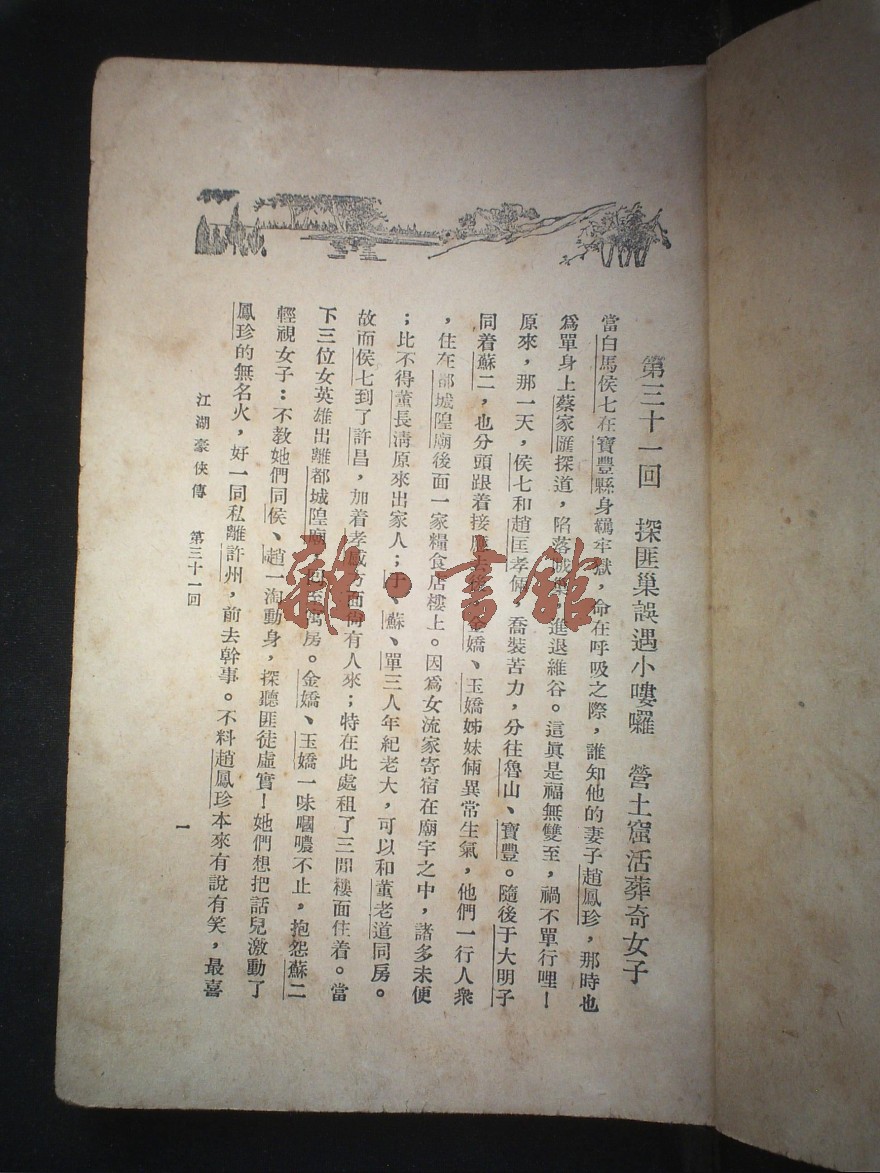 第三十一回　探匪巢誤遇小嘍囉　營土窟活葬奇女子
當白馬侯七在寶豐縣身羈牢獄，命在呼吸之際，誰知他的妻子趙鳳珍，那時也
爲單身上蔡家匯探道，陷落 進退維谷。這眞是福無雙至，禍不單行哩！
原來，那一天，侯七和趙匡孝倆，喬裝苦力，分往魯山、寶豐。隨後于大明子
同着蘇二，也分頭跟着接應去後，金嬌、玉嬌姊妹倆異常生氣，他們一行人衆
，住在都城隍廟後面一家糧食店樓上。因爲女流家寄宿在廟宇之中，諸多未便
；比不得董長清原來出家人；于、蘇、單三人年紀老大，可以和董老道同房。
故而侯七到了許昌，加着孝感方面尚有人來；特在此處租了三間樓面住着。當
下三位女英雄出離都城隍廟 房。金嬌、玉嬌一味嘓噥不止，抱怨蘇二
輕視女子：不教她們同侯、趙一淘動身，探聽匪徒虛實！她們想把話兒激動了
鳳珍的無名火，好一同私離許州，前去幹事。不料趙鳳珍本來有說有笑，最喜
江湖豪俠傳　第三十一回
一
雜·書館